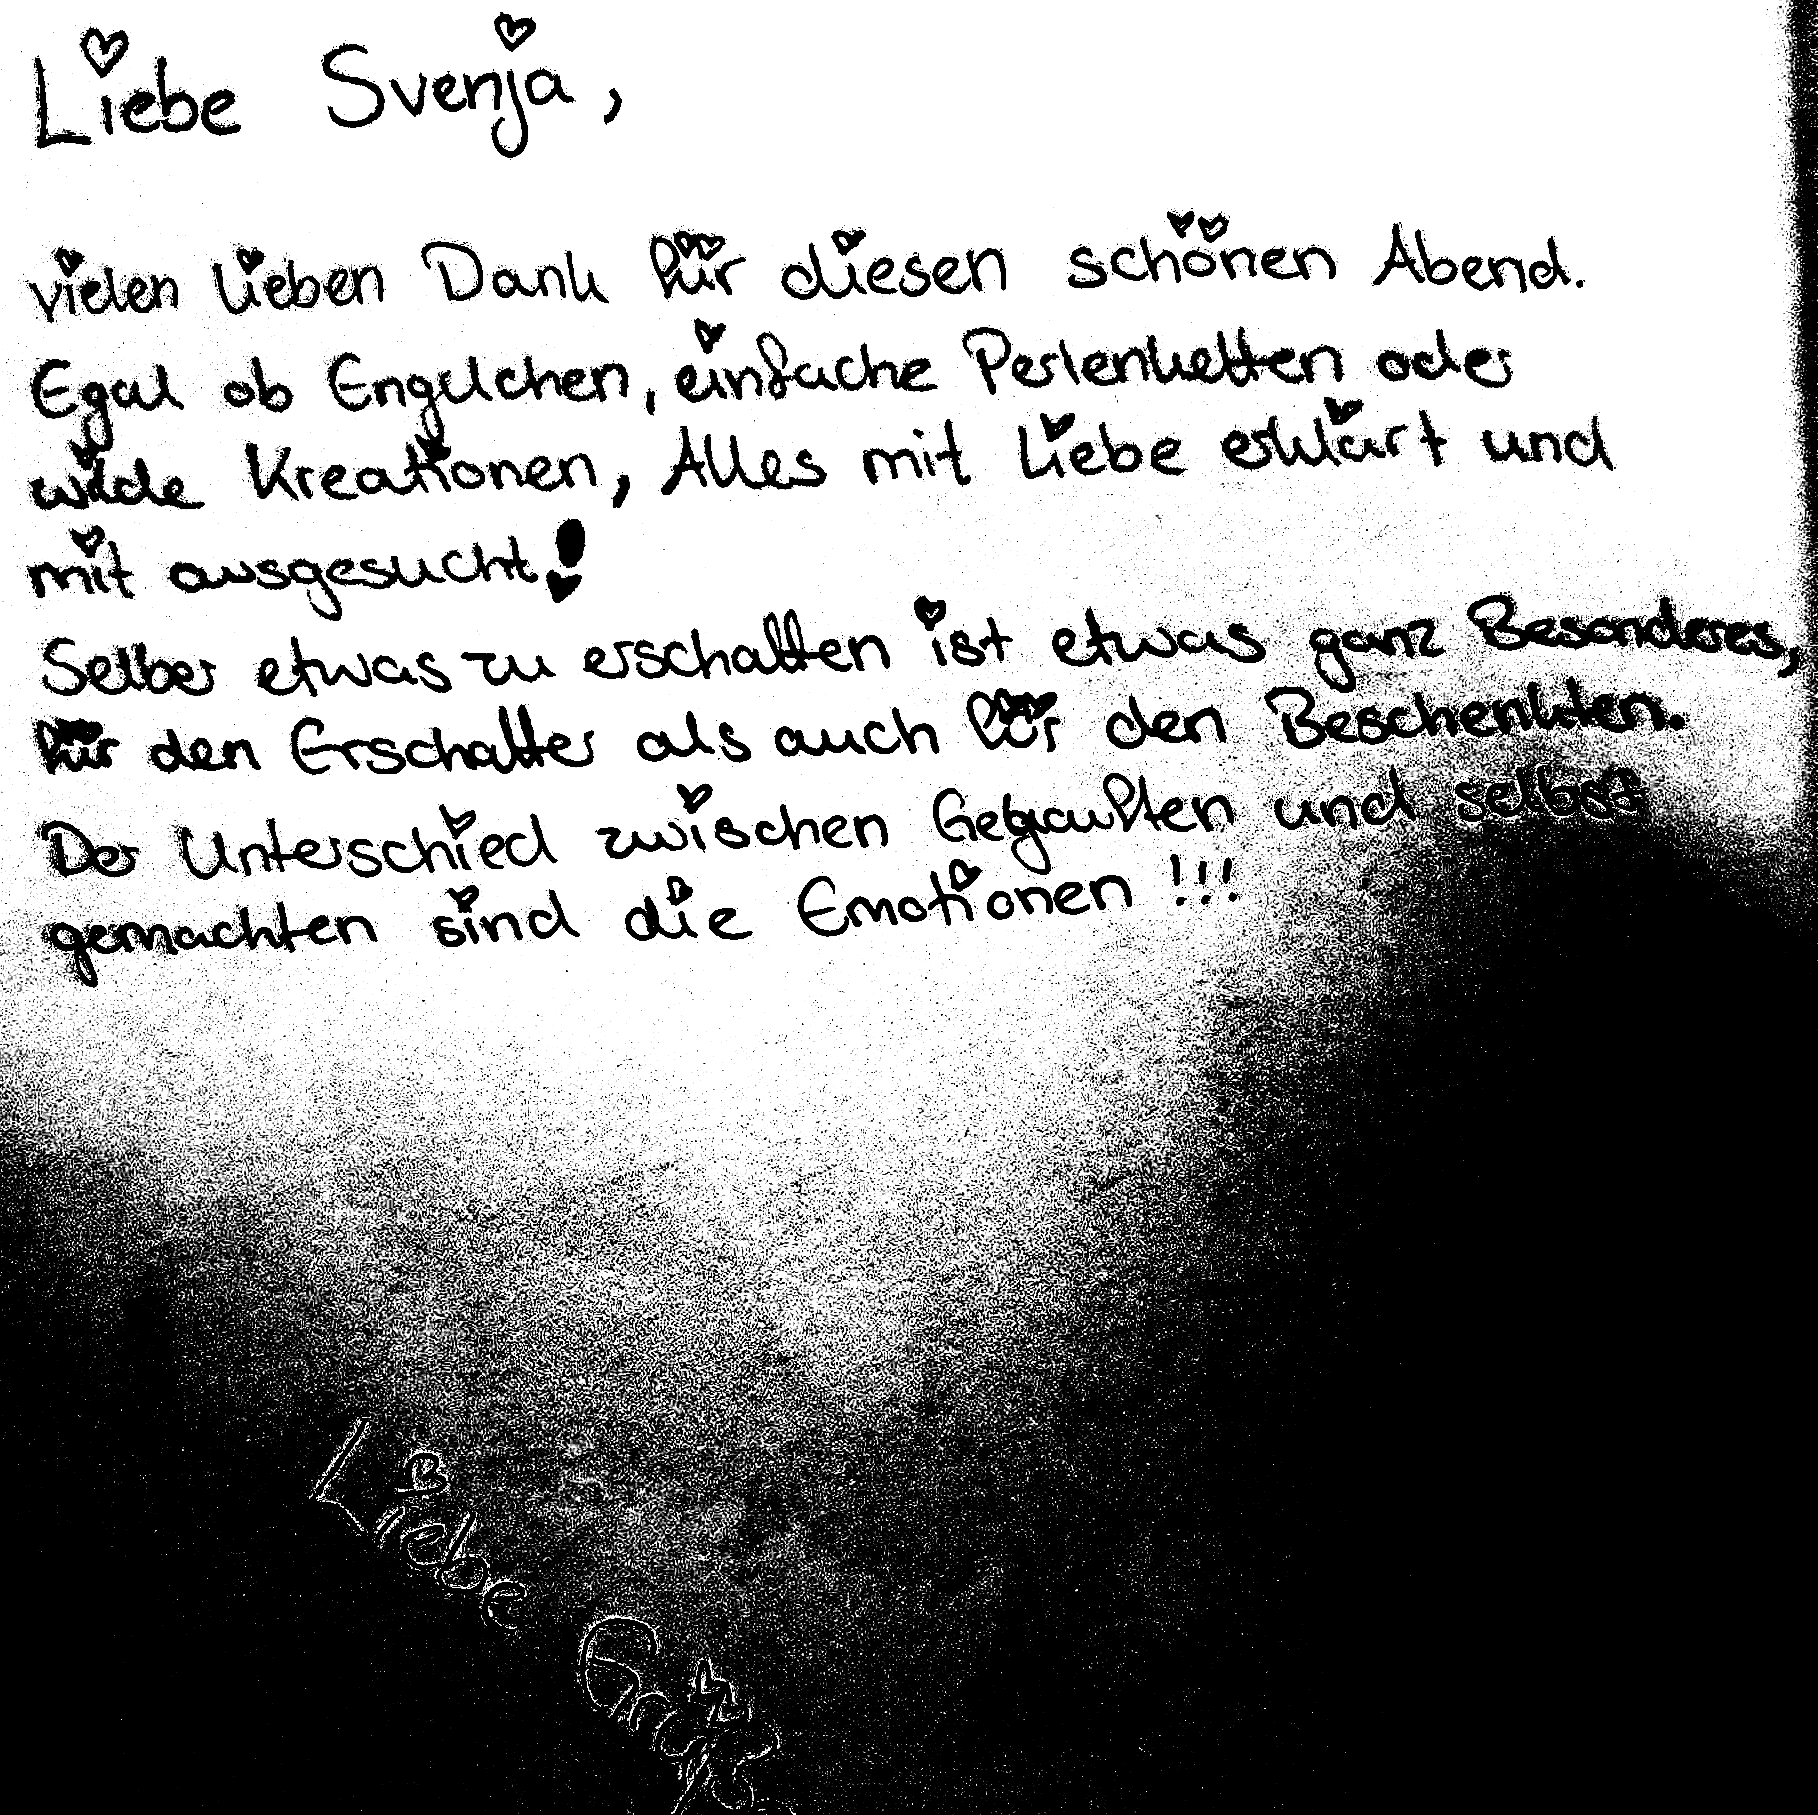 Liebe Svenja,
vielen lieben Dank für diesen schönen Abend.
Egal ob Engelchen, einfache Perlenketten oder
wilde Kreationen, Alles mit Liebe erklärt und
mit ausgesucht!
Selber etwas zu erschaffen ist etwas ganz Besonderes,
für den Erschaffer als auch für den Beschenkten.
Der Unterschied zwischen Gekauften und selbst
gemachten sind die Emotionen !!!
Liebe